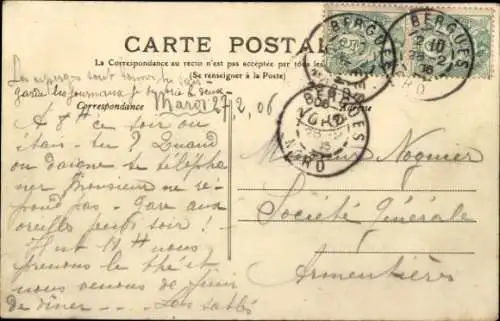 CARTE POSTALE
La Correspondance au recto n'est pas acceptée par tous les
(Se renseigner à la Poste)
garde les journaux
Correspondance
Mardi 27.2.06
Adresse
A 8h ce soir ou
étais-tu ? Quand
on daigne te télépho
ner Monsieur ne ré-
pond pas - Gare aux
oreilles jeudi soir !
nous
prenons le thé et
nous venons de finir
de dîner
Monsieur Noguier
Société Générale
Armentières
BERGUES
NORD
BERGUES
10
NORD
BERGUES
NORD